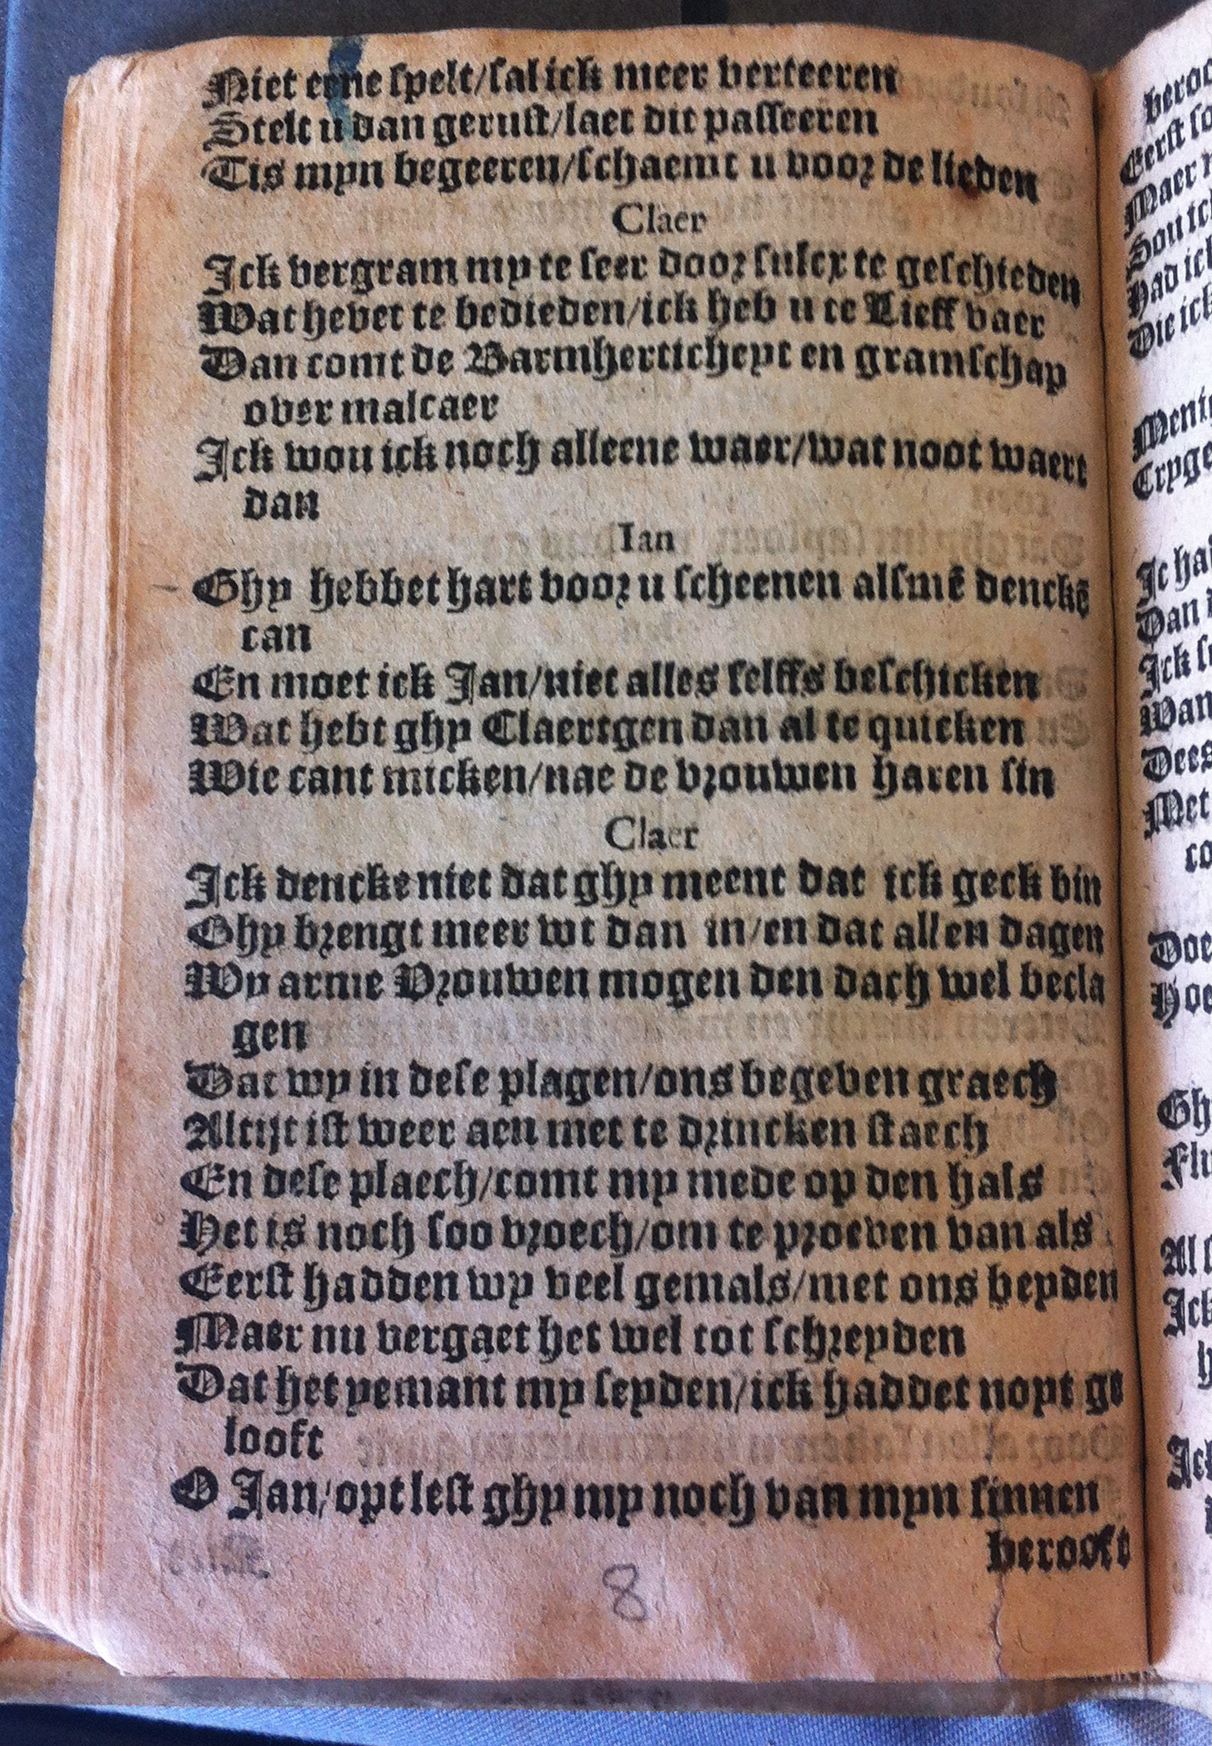 Niet eene spelt/sal ick meer verteeren
Stelt u dan gerust/laet dit passeeren
Tis myn begeeren/schaemt u voor de lieden
Claer
Ick vergram my te seer door sulcx te geschieden
Wat hevet te bedieden/ick heb u te Lieff vaer
Dan comt de Barmhertichept en gramschap
over malcaer
Ick wou ick noch alleene waer/wat noot waert
dan
Ian
Ghy hebbet hart voor u scheenen alsmē denckē
can
En moet ick Jan/niet alles selffs beschicken
Wat hebt ghy Claertgen dan al te quicken
Wie cant micken/nae de vrouwen haren sin
Claer
Ick dencke niet dat ghy meent dat ick geck bin
Ghy brengt meer wt dan in/en dat allen dagen
Wy arme Vrouwen mogen den dach wel becla
gen
Dat wy in dese plagen/ons begeven graech
Altijt ist weer aen met te drincken staech
En dese plaech/comt my mede op den hals
Het is noch soo vroech/om te proeven van als
Eerst hadden wy veel gemals/met ons beyden
Maer nu vergaet het wel tot schreyden
Dat het yemant my seyden/ick haddet noyt ge
looft
O Jan/opt lest ghy my noch van myn sinnen
berooft
8
beroo
Eerst so
Maer
Sou ick
Had ick
Die ick
Menich
Cryge
Ic had
Dan
Ick
Wan
Dees
Met
co
Doe
Hoe
Gh
Al
Ick
h
Ick